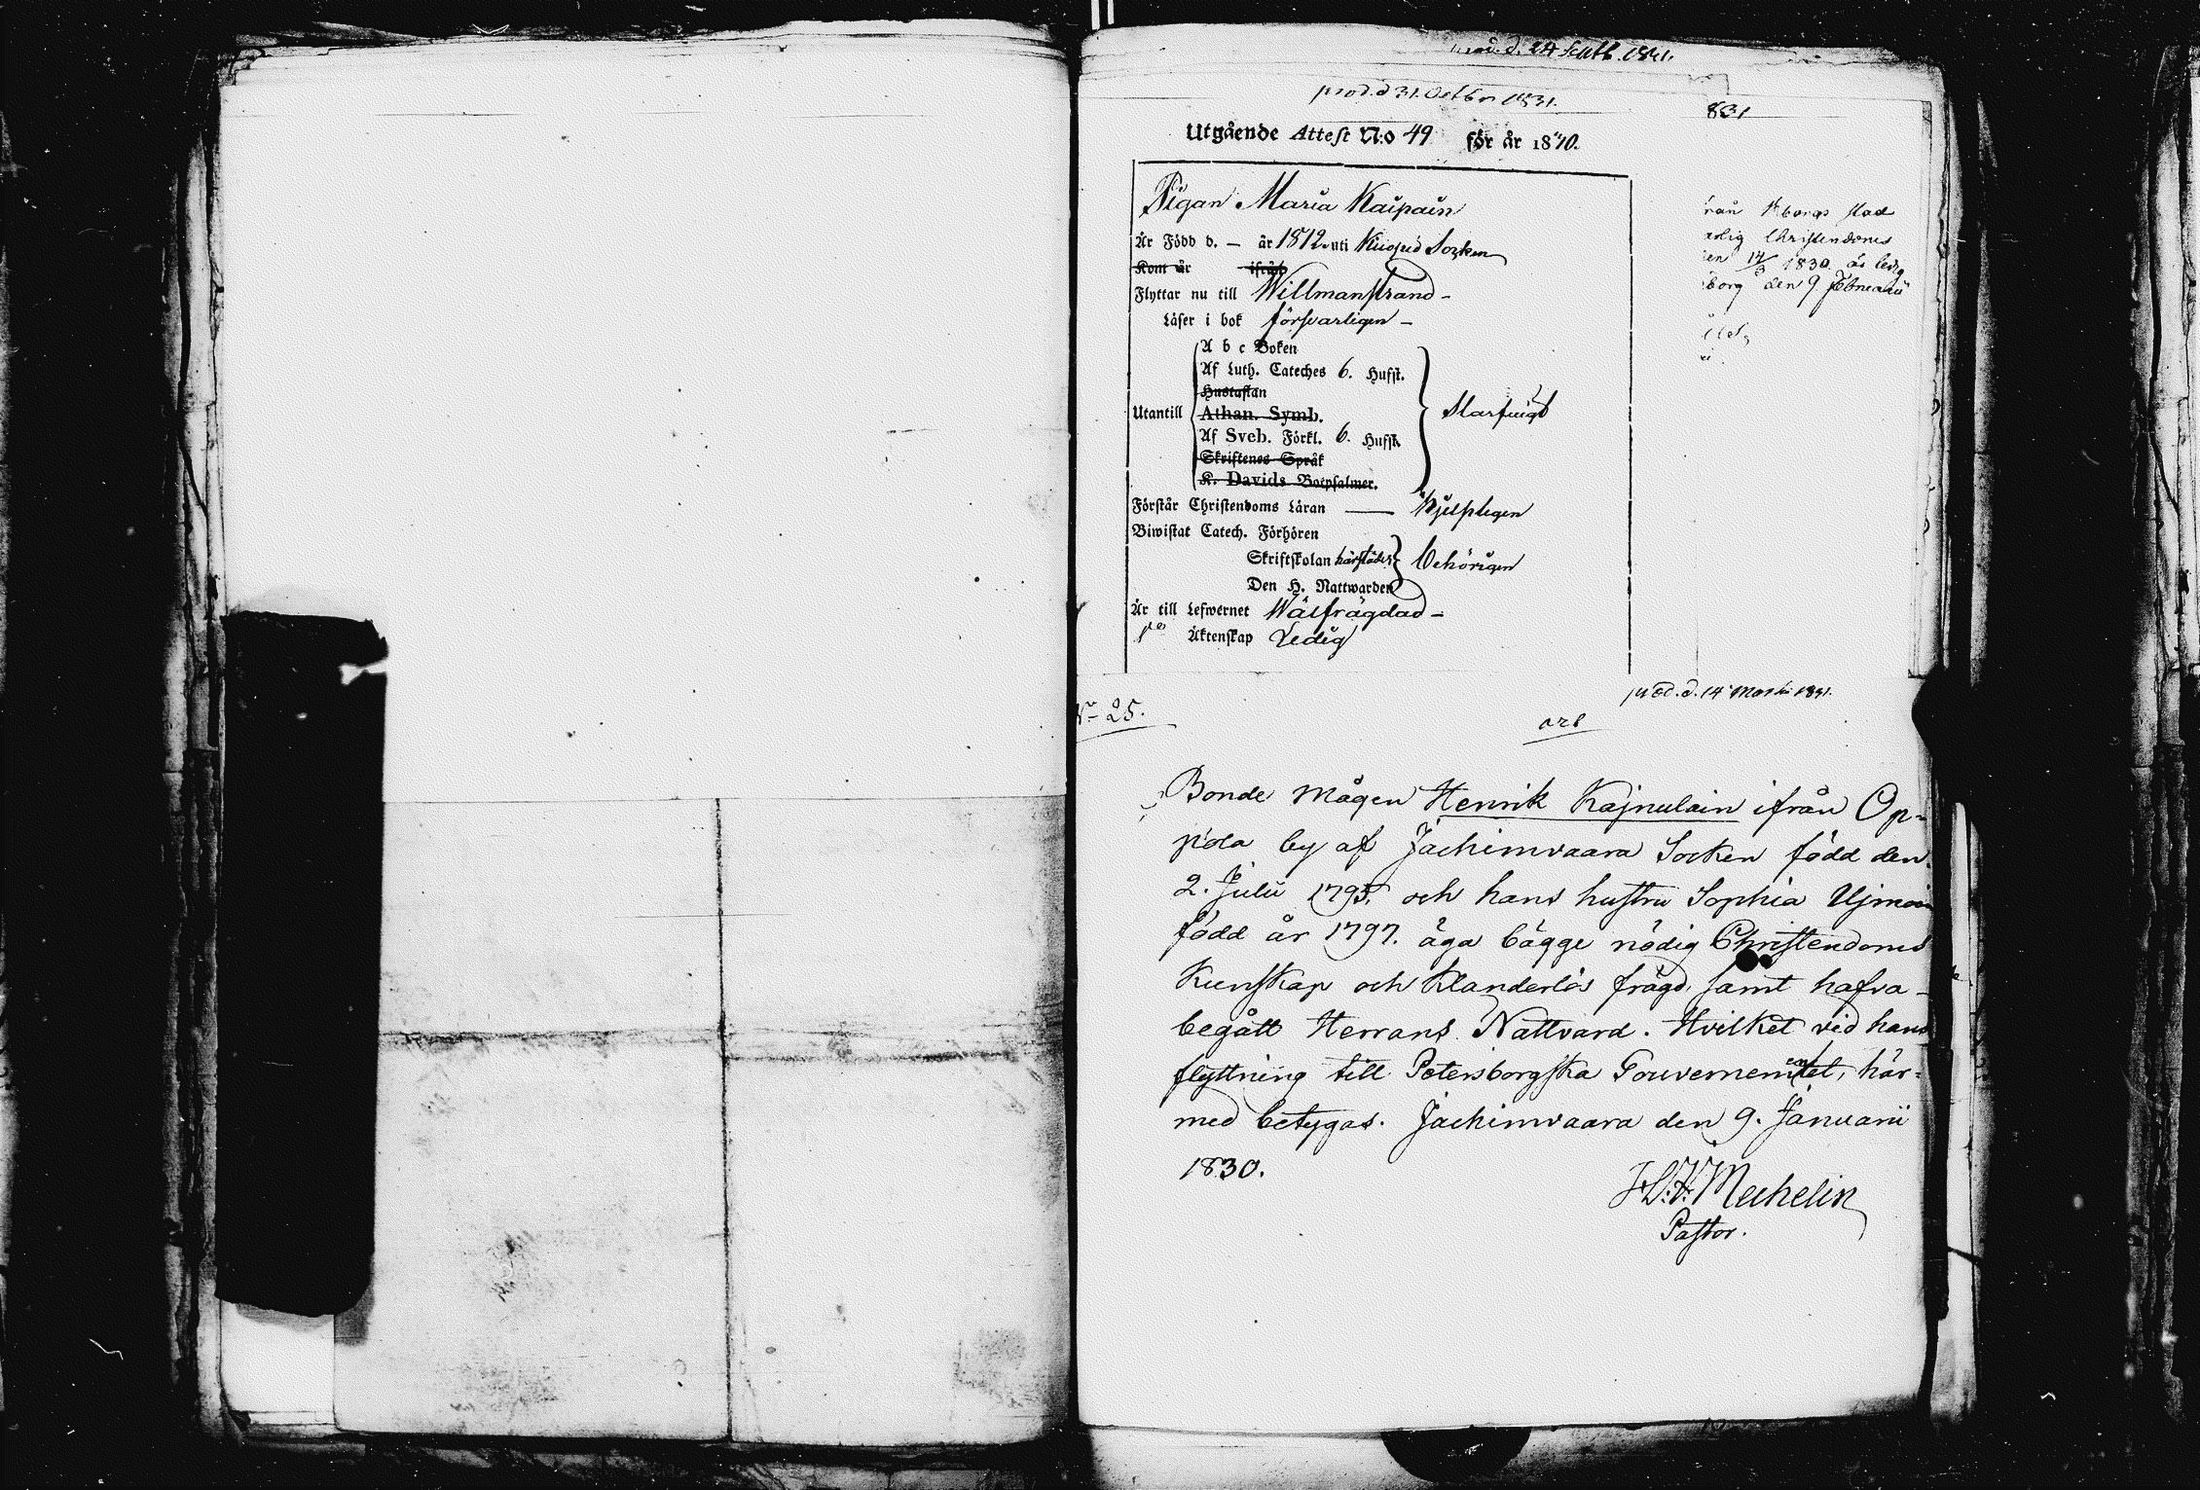 prod. d. 24 Septb. 1831.
prod. d 31. Octbr 1831.
831
Utgående Attest N:o 49 för år 1840.
Pigan Maria Kaipain
Är Född d. — år 1812 uti Socken
Kom år ifrån
Flyttar nu till Willmanstrand –
Läser i bok försvarligen –
A b c Boken
Af Luth. Cateches 6. Hufst.
Hustaflan
Utantill Athan. Symb.
Af Sveb. Förkl. 6. Hufst.
Skriftenes Språk
K. Davids Botpsalmer.
Förstår Christendoms Läran — Hjelpligen
Biwistat Catech. Förhören
Skriftskolan härstädes behörigen
Den H. Nattwarden
Är till Lefwernet Wälfrägdad –
Äktenskap Ledig
rån borgs stad
Christendoms
en 14/3 1830. är ledig
borg den 9 Februarii
prod. d. 14 Martii 1831.
No 25.
Bonde mågen Henrik Kajnulain ifrån Op=
pola by af Jachimvaara Socken född den
2. Julii 1795, och hans hustru Sophia
född år 1797. äga bägge nödig Christendoms
Kunskap och Klanderlös frägd, samt hafva
begått Herrans Nattvard. Hvilket vid hans
flyttning till Petersborgska Gouvernementet, här=
med betygas. Jachimvaara den 9. Januarii
1830.
Mechelin
Pastor.